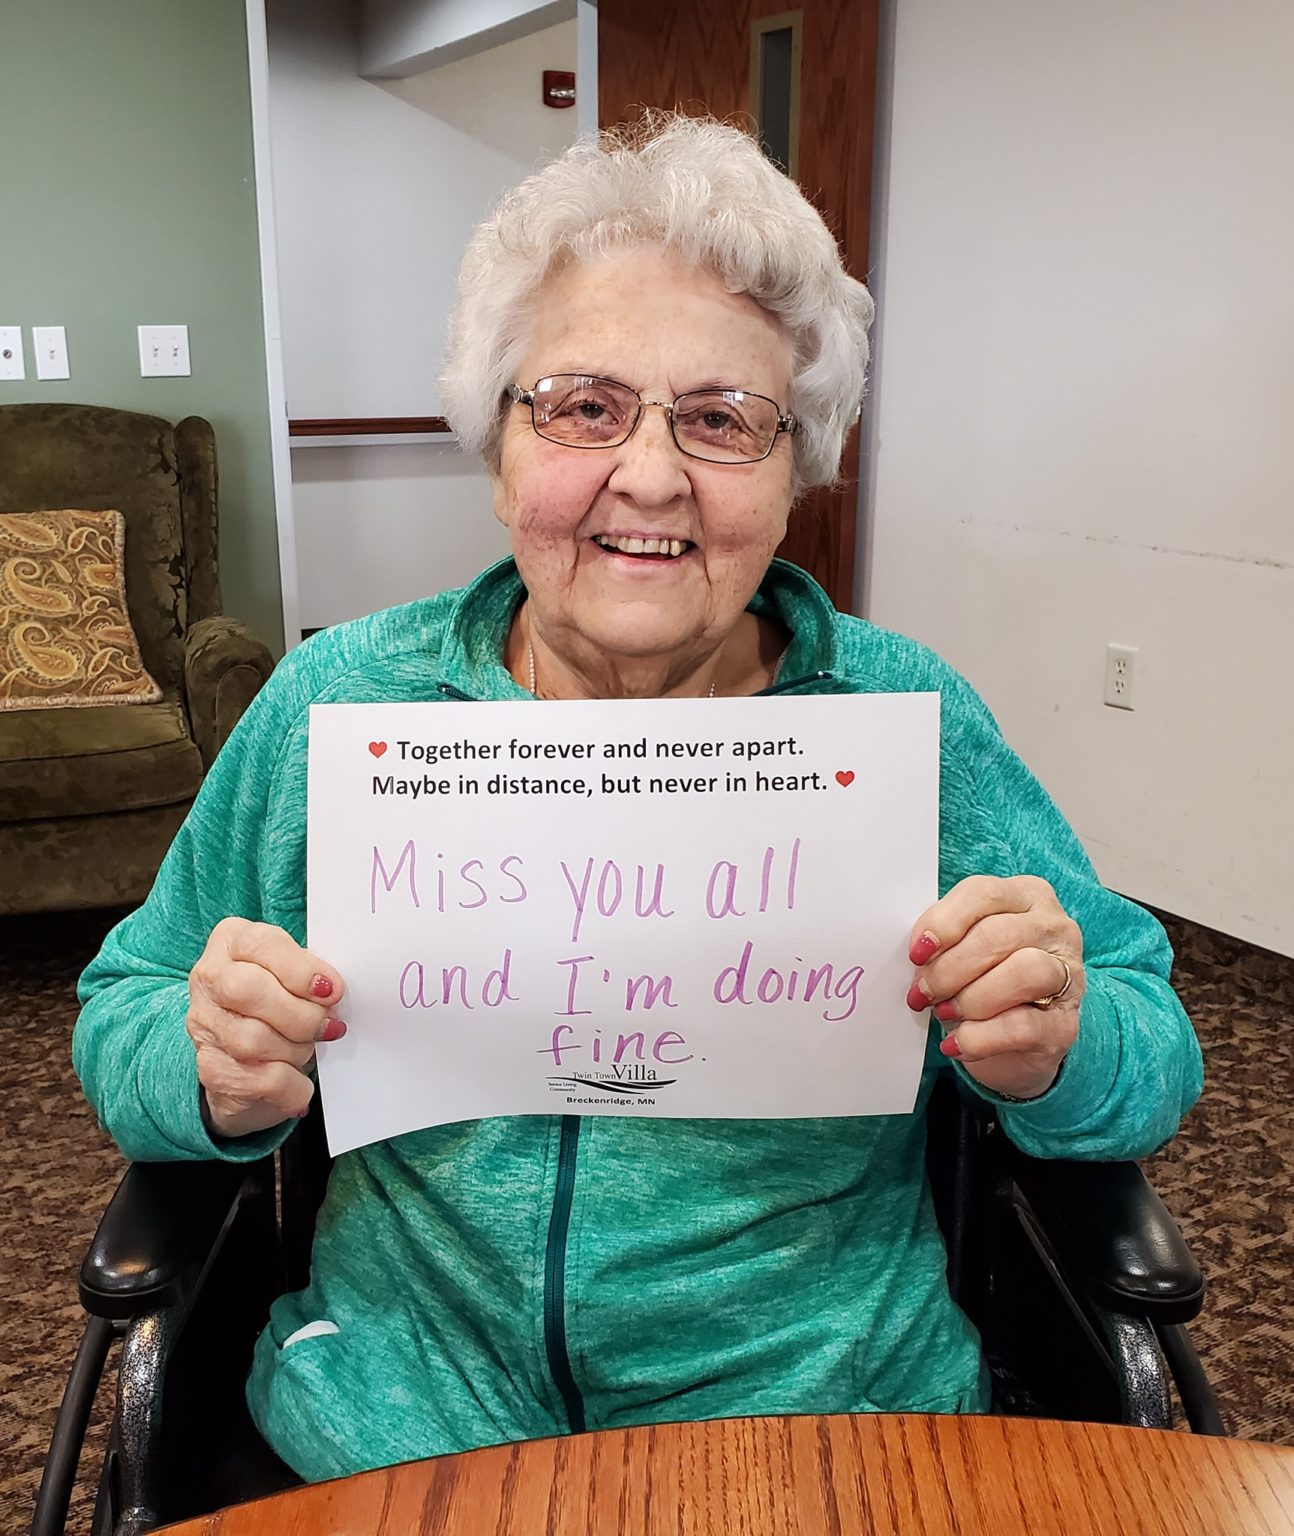 ❤ Together forever and never apart.
Maybe in distance, but never in heart. ❤
Miss you all
and I'm doing
fine.
Twin Town Villa
Senior Living
Community
Breckenridge, MN